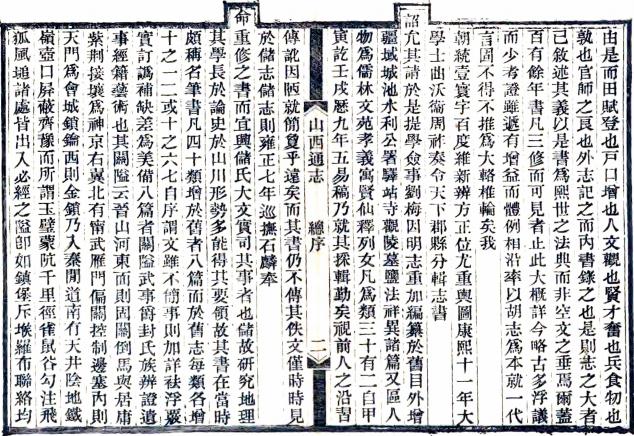 由是而田賦登也戶口增也人文觀也賢才奮也兵食牣也
也官師之良也外志記之而內書錄之也是則志之大者
已敘述其義以是書爲熙世之法典而非空文之垂焉爾蓋
百有餘年書凡三修而可見者止此大概詳今略古多浮議
而少考證雖遞有增益而體例相沿率以胡志爲本就一代
言固不得不推爲大輅椎輪矣我
朝統壹寰宇百度維新辨方正位尤重輿圖康熙十一年大
學士曲沃衞周祚奏令天下郡縣分輯志書
詔允其請於是提學僉事劉梅因明志重加編纂於舊目外增
疆域城池水利公署驛站寺觀陵墓鹽法祥異諸篇又區人
物爲儒林文苑孝義寓賢仙釋列女凡爲類三十有二自甲
寅訖壬戌歷九年五易稿乃就其採輯勤矣視前人之沿習
山西通志 總序 二
傳訛因陋就簡敻乎遠矣而其書仍不傳其佚文僅時時見
於儲志儲志則雍正七年巡撫石麟奉
命重修之書而宜興儲氏大文實司其事者也儲故研究地理
其學長於論史於山川形勢多能得其要領故其書在當時
頗稱名筆書凡四十類增於舊者八篇而於舊志每類各增
十之一二或十之六七自序謂文雖不簡事則加詳袪浮覈
實訂譌補缺差爲美備八篇者關隘武事爵封氏族辨證遺
事經籍藝術也其關隘云晉山河東而則固關倒馬與居庸
紫荆接壤爲神京右翼北有甯武雁門偏關控制邊塞內則
天門爲會城鎖鑰西則金鎖乃入秦閒道南有天井陰地鐵
嶺壺口屏蔽齊豫而所謂玉壁蒙阬千里徑雀鼠谷勾注飛
狐風諸處皆出入必經之隘師如鎮堡斥堠羅布聯絡均